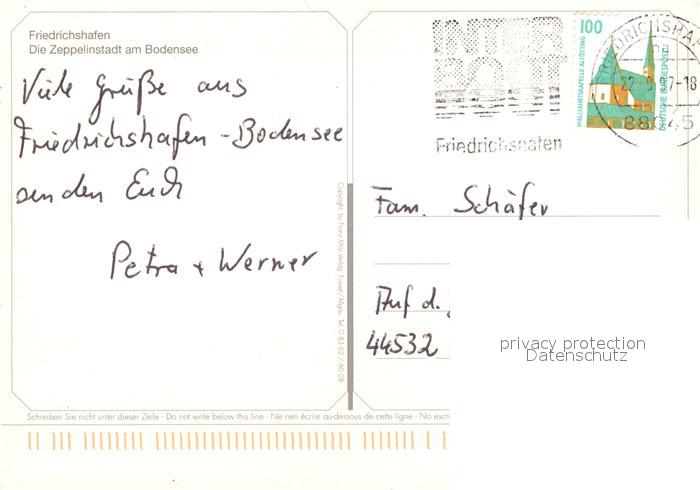 Friedrichshafen
Die Zeppelinstadt am Bodensee
Viele Grüße aus
Friedrichshafen - Bodensee
senden Euch
Petra + Werner
INTER
BOOT
Friedrichshafen
100
WALLFAHRTSKAPELLE ALTÖTTING
DEUTSCHE BUNDESPOST
FRIEDRICHSHAFEN
Fam. Schäfer
Auf d.
44532
privacy protection
Datenschutz
Copyright by Franz Milz Verlag Füssen/Allgäu Tel. 0 83 62 / 60 08
Schreiben Sie nicht unter dieser Zeile - Do not write below this line - Ne rien écrire au-dessous de cette ligne - No escri